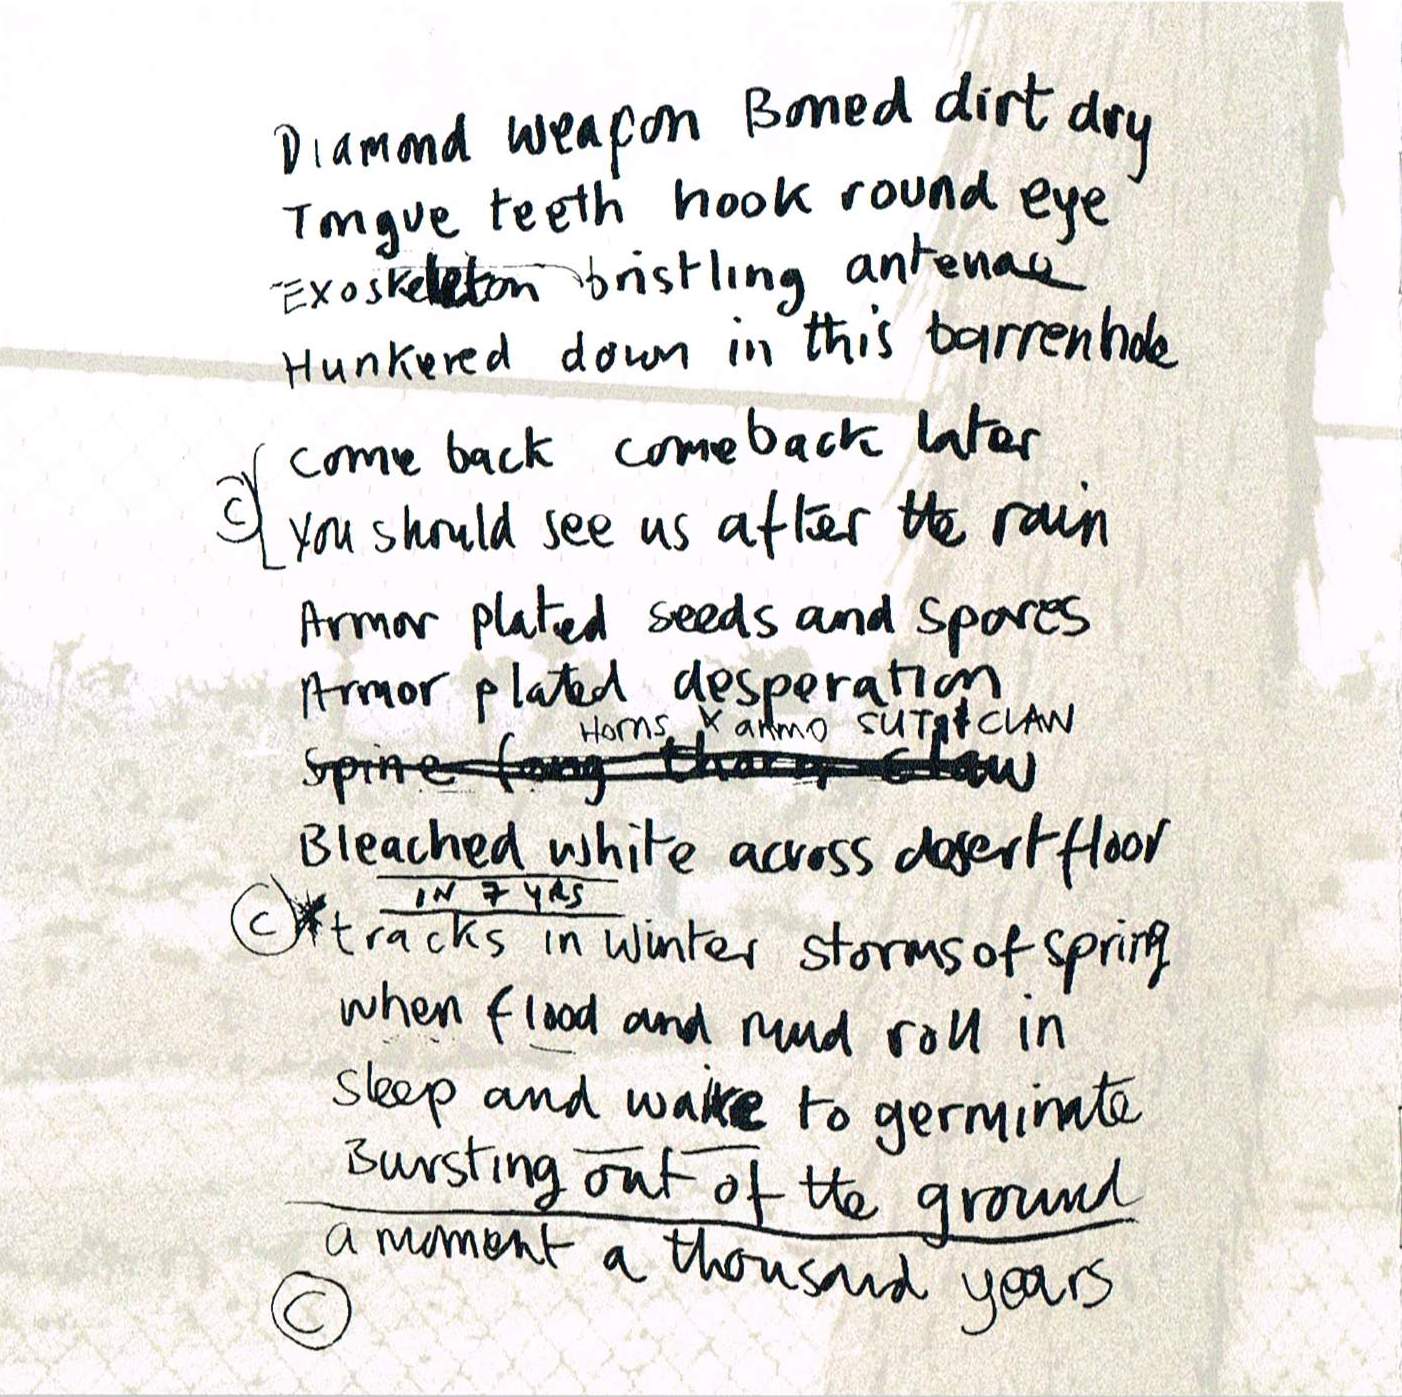 Diamond weapon Boned dirt dry
Tongue teeth hook round eye
Exoskeleton bristling antenae
Hunkered down in this barren hole
come back come back later
C
you should see us after the rain
Armor plated seeds and spores
Armor plated desperation
Horns X ammo CLAW
Spine fang thorn claw
Bleached white across desert floor
IN 7 YRS
C * tracks in winter storms of spring
when flood and mud roll in
sleep and wake to germinate
Bursting out of the ground
a moment a thousand years
C